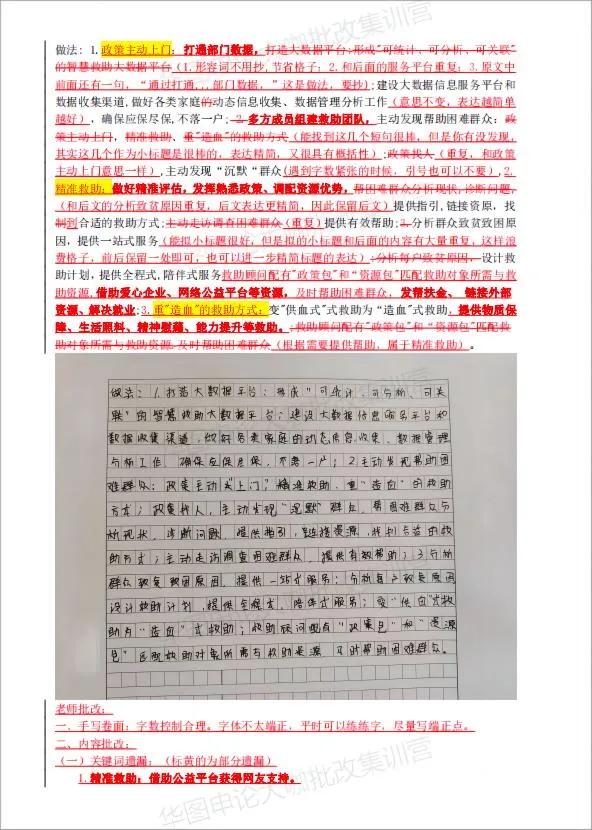 做法：1.政策主动上门：打通部门数据，打造大数据平台:形成"可统计、可分析、可关联"
的智慧救助大数据平台（1.形容词不用抄,节省格子；2.和后面的服务平台重复；3.原文中
前面还有一句，“通过打通,,,部门数据，”这是做法，要抄);建设大数据信息服务平台和
数据收集渠道,做好各类家庭的动态信息收集、数据管理分析工作（意思不变，表达越简单
越好），确保应保尽保,不落一户；2.多方成员组建救助团队，主动发现帮助困难群众：政
策主动上门，精准救助、重"造血"的救助方式（能找到这几个短句很棒，但是你有没发现,
其实这几个作为小标题是很棒的，表达精简，又很具有概括性）;政策找人（重复，和政策
主动上门意思一样）,主动发现“沉默“群众（遇到字数紧张的时候，引号也可以不要）,2.
精准救助：做好精准评估，发挥熟悉政策、调配资源优势，帮困难群众分析现状,诊断问题，
（和后文的分析致贫原因重复，后文表达更精简，因此保留后文）提供指引,链接资原，找
制到合适的救助方式;主动走访调查困难群众（重复）提供有效帮助;3.分析群众致贫致困原
因，提供一站式服务（能拟小标题很好，但是拟的小标题和后面的内容有大量重复，这样浪
费格子，前后保留一处即可，也可以进一步精简标题的表达）:分析每户致贫原因，设计救
助计划，提供全程式,陪伴式服务救助顾问配有"政策包"和"资源包"匹配救助对象所需与救
助资源,借助爱心企业、网络公益平台等资源，及时帮助困难群众，发帮扶金、 链接外部
资源、解决就业;3.重"造血"的救助方式：变"供血式"式救助为 “造血”式救助,提供物质保
障、生活照料、精神慰藉、能力提升等救助。:救助顾问配有"政策包"和“资源包"匹配救
助对象所需与救助资源.及时帮助困难群众（根据需要提供帮助，属于精准救助）。
做法：1.打造大数据平台：形成"可统计、可分析、可关
联"的智慧救助大数据平台；建设大数据信息服务平台和
数据收集渠道，做好各类家庭的动态信息收集、数据管理
分析工作，确保应保尽保，不落一户；2主动发现帮助困
难群众：政策主动"上门"，精准救助、重"造血"的救助
方式；政策找人，主动发现"沉默"群众，帮困难群众分
析现状，诊断问题，提供指引，链接资源，找到合适的救
助方式；主动走访调查困难群众，提供有效帮助；3分析
群众致贫致困原因，提供一站式服务：分析每户致贫原因
设计救助计划，提供全程式，陪伴式服务；变"供血"式救
助为"造血"式救助；救助顾问配有"政策包"和"资源
包"匹配救助对象所需与救助资源，及时帮助困难群众。
老师批改：
一、手写卷面：字数控制合理。字体不太端正，平时可以练练字，尽量写端正点。
二、内容批改：
（一）关键词遗漏：（标黄的为部分遗漏）
1.精准救助：借助公益平台获得网友支持。
华图申论大咖批改集训营
华图申论大咖批改集训营